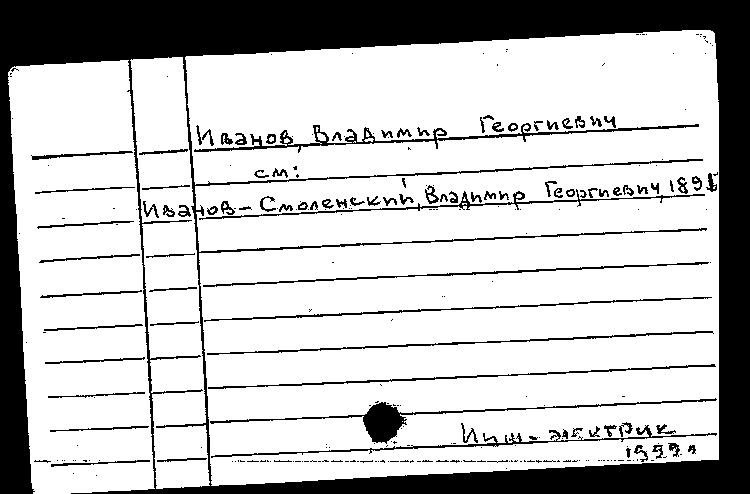 Иванов, Владимир Георгиевич
см:
Иванов-Смоленский, Владимир Георгиевич, 1895
Инж-электрик